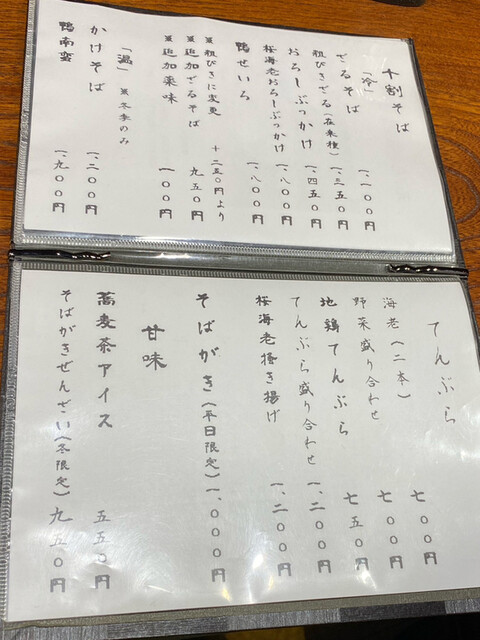 十割そば
「冷」
ざるそば 一、一〇〇円
粗びきざる(在来種) 一、三五〇円
おろしぶっかけ 一、四五〇円
桜海老おろしぶっかけ 一、八〇〇円
鴨せいろ 一、八〇〇円
※粗びきに変更 +二五〇円より
※追加ざるそば 九五〇円
※追加薬味 一〇〇円
「温」 ※冬季のみ
かけそば 一、二〇〇円
鴨南蛮 一、九〇〇円
てんぷら
海老(二本) 七〇〇円
野菜盛り合わせ 七〇〇円
地鶏てんぷら 七五〇円
てんぷら盛り合わせ 一、二〇〇円
桜海老掻き揚げ 一、二〇〇円
そばがき(平日限定) 一、〇〇〇円
甘味
蕎麦茶アイス 五五〇円
そばがきぜんざい(冬限定) 九五〇円